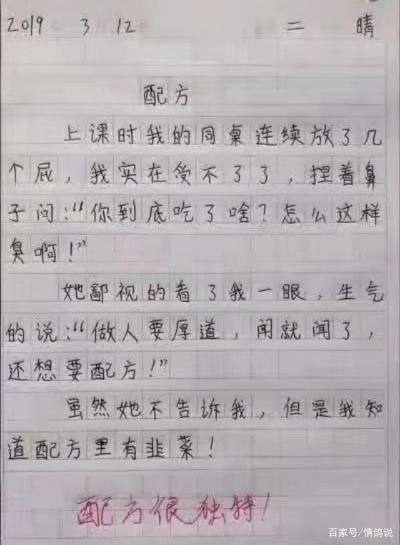 2019 3 12 二 晴
配方
上课时我的同桌连续放了几
个屁，我实在受不了了，捏着鼻
子问：“你到底吃了啥？怎么这样
臭啊！”
她鄙视的看了我一眼，生气
的说：“做人要厚道，闻就闻了，
还想要配方！”
虽然她不告诉我，但是我知
道配方里有韭菜！
配方很独特！
百家号/情鸽说